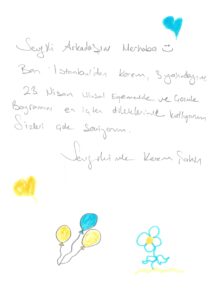 Sevgili Arkadaşım Merhaba
Ben İstanbul'dan Kerem,
23 Nisan Ulusal Egemenlik ve Çocuk
Bayramını en içten dileklerimle kutluyorum
Sizleri çok seviyorum.
Sevgilerimle Kerem